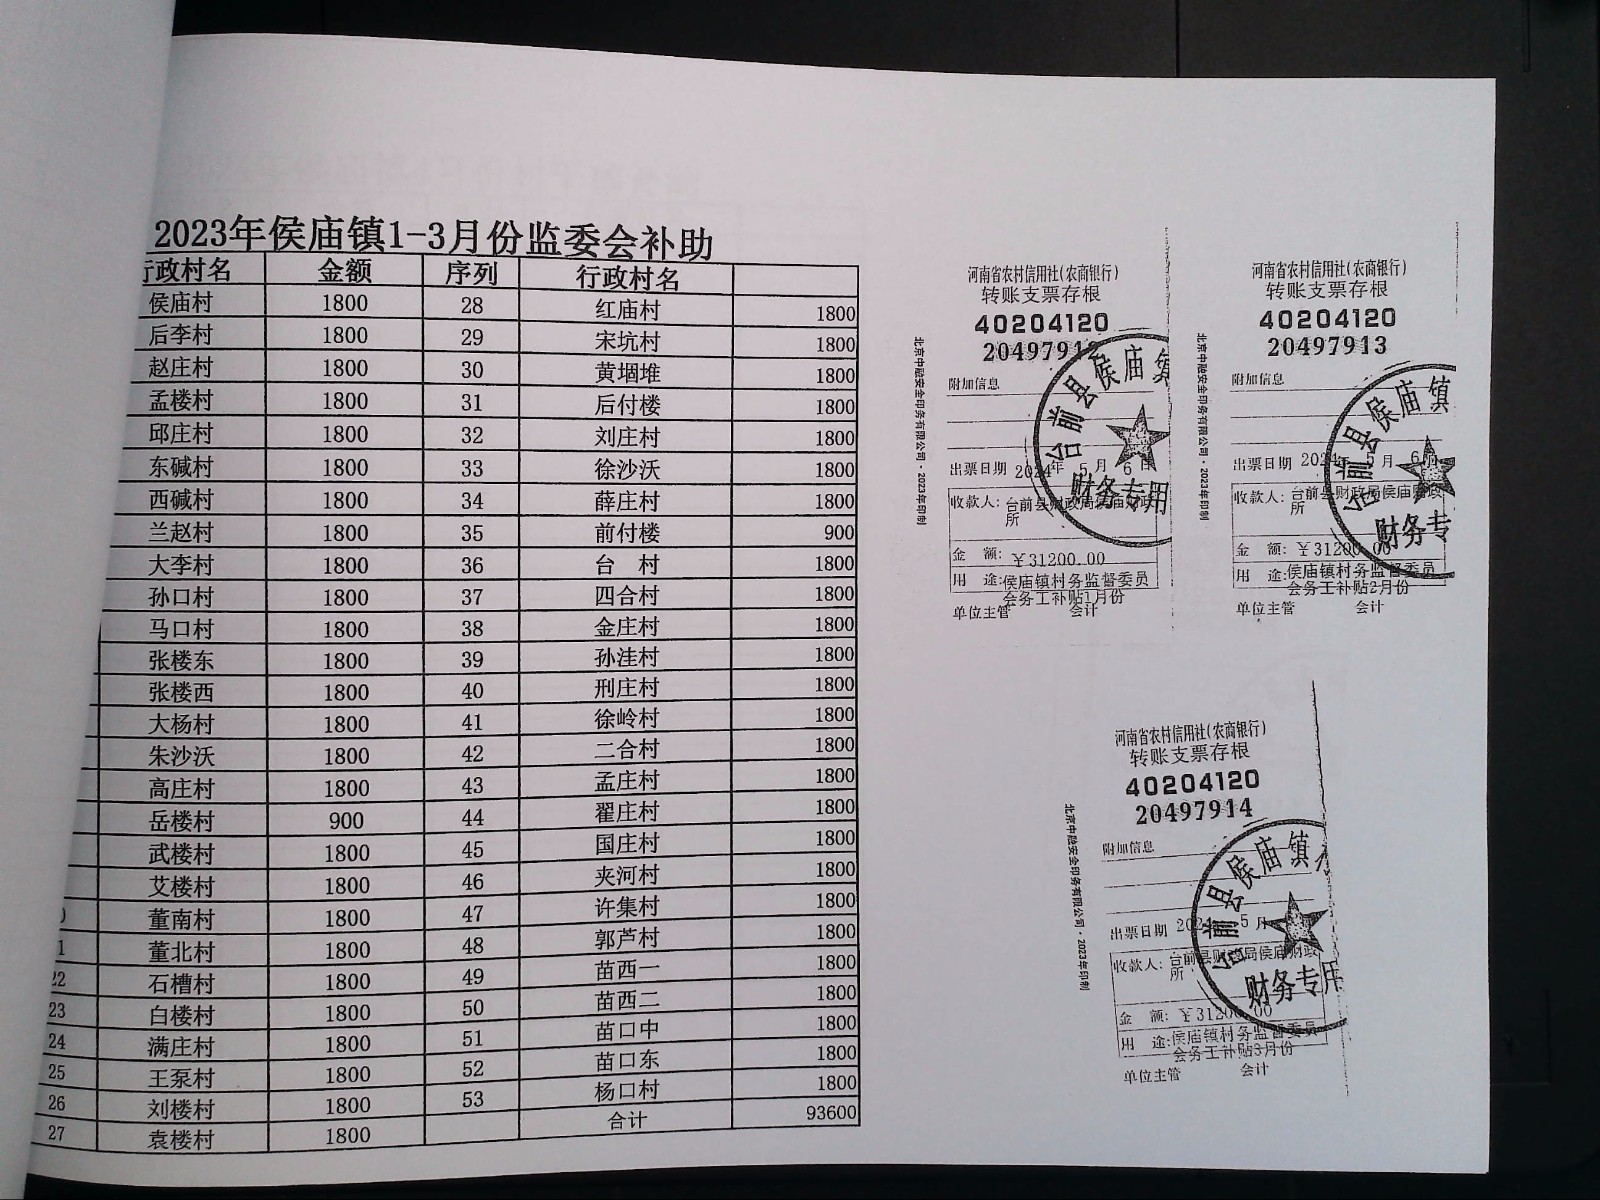 2023年侯庙镇1-3月份监委会补助
行政村名 金额 序列 行政村名
侯庙村 1800 28 红庙村 1800
后李村 1800 29 宋坑村 1800
赵庄村 1800 30 黄堌堆 1800
孟楼村 1800 31 后付楼 1800
邱庄村 1800 32 刘庄村 1800
东碱村 1800 33 徐沙沃 1800
西碱村 1800 34 薛庄村 1800
兰赵村 1800 35 前付楼 900
大李村 1800 36 台 村 1800
孙口村 1800 37 四合村 1800
马口村 1800 38 金庄村 1800
张楼东 1800 39 孙洼村 1800
张楼西 1800 40 刑庄村 1800
大杨村 1800 41 徐岭村 1800
朱沙沃 1800 42 二合村 1800
高庄村 1800 43 孟庄村 1800
岳楼村 900 44 翟庄村 1800
武楼村 1800 45 国庄村 1800
艾楼村 1800 46 夹河村 1800
董南村 1800 47 许集村 1800
1 董北村 1800 48 郭芦村 1800
22 石槽村 1800 49 苗西一 1800
23 白楼村 1800 50 苗西二 1800
24 满庄村 1800 51 苗口中 1800
25 王泵村 1800 52 苗口东 1800
26 刘楼村 1800 53 杨口村 1800
27 袁楼村 1800 合计 93600
河南省农村信用社(农商银行)
转账支票存根
40204120
2049791
附加信息
出票日期 2024年 5 月 6 日
收款人: 台前县财政局侯庙财政
所
金 额: ￥31200.00
用 途: 侯庙镇村务监督委员
会务工补贴1月份
单位主管 会计
北京中融安全印务有限公司·2023年印制
台前县侯庙镇
财务专用
河南省农村信用社(农商银行)
转账支票存根
40204120
20497913
附加信息
出票日期 2024年 5 月 6 日
收款人: 台前县财政局侯庙财政
所
金 额: ￥31200.00
用 途: 侯庙镇村务监督委员
会务工补贴2月份
单位主管 会计
北京中融安全印务有限公司·2023年印制
台前县侯庙镇
财务专
河南省农村信用社(农商银行)
转账支票存根
40204120
20497914
附加信息
出票日期 202 5 月
收款人: 台前县财政局侯庙财政
所
金 额: ￥31200.00
用 途: 侯庙镇村务监督委员
会务工补贴3月份
单位主管 会计
北京中融安全印务有限公司·2023年印制
台前县侯庙镇
财务专用